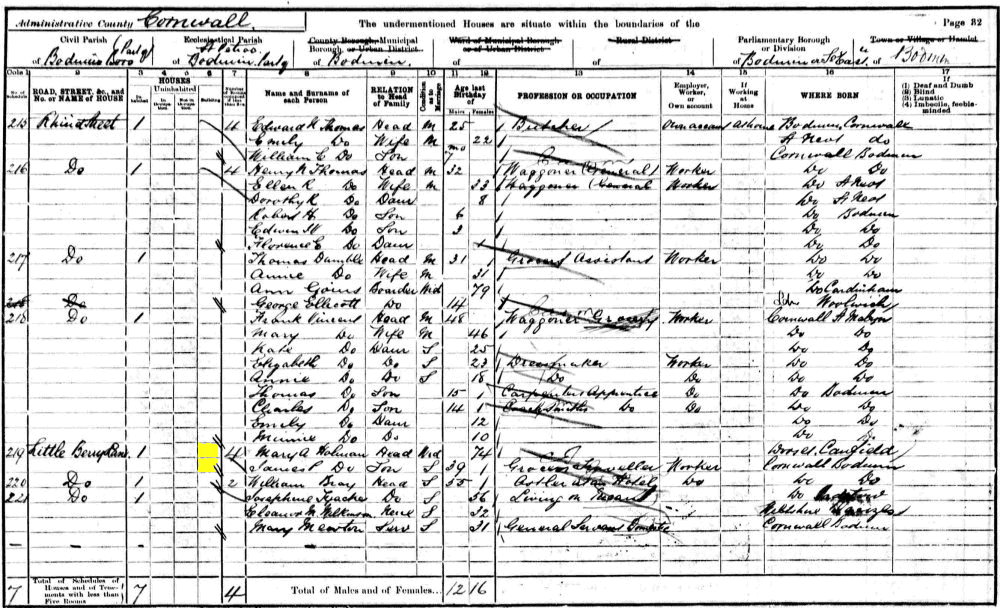 Administrative County Cornwall. The undermentioned Houses are situate within the boundaries of the Page 32
Civil Parish Ecclesiastical Parish County Borough, Municipal Borough, or Urban District Ward of Municipal Borough or of Urban District Rural District Parliamentary Borough or Division Town or Village or Hamlet
of Bodmin Boro (Part of) of St Petroc Bodmin Part of of Bodmin of of of Bodmin or S. East of Bodmin
Cols 1 2 3 4 5 6 7 8 9 10 11 12 13 14 15 16 17
No. of Schedule ROAD, STREET, &c., and No. or NAME of HOUSE HOUSES Inhabited Uninhabited In Occupation Not in Occupation Building Name and Surname of each Person RELATION to Head of Family Condition as to Marriage Age last Birthday of Males Females PROFESSION OR OCCUPATION Employer, Worker, or Own account If Working at Home WHERE BORN (1) Deaf and Dumb (2) Blind (3) Lunatic (4) Imbecile, feeble-minded
215 Rhind Street 1 4 Edward K Thomas Head M 25 Butcher Own account At home Bodmin, Cornwall
Emily Do Wife M 22 St Neot do
William C Do Son 7 mo Cornwall Bodmin
216 Do 1 4 Henry N Thomas Head M 32 Waggoner (General) Worker Do Do
Ellen K Do Wife M 33 Waggoner General Worker Do St Neot
Dorothy K Do Daur 8 Do St Neot
Robert H. Do Son 6 Do Bodmin
Edwin W Do Son 3 Do Do
Florence E Do Daur 1 Do Do
217 Do 1 Thomas Dumble Head M 31 Grocers Assistant Worker Do Do
Annie Do Wife M 31 Do Do
Ann Goins Boarder Wid 79 Do Cardinham
George Ellicott Do 14 Woolwich
218 Do 1 Frank Vincent Head M 48 Waggoner Grocery Worker Cornwall St Mabyn
Mary Do Wife M 46 Do Do
Kate Do Daur S 25 Do Do
Elizabeth Do Do S 23 Dressmaker Worker Do Do
Annie Do Do S 18 Do Do Do Do
Thomas Do Son 15 Carpenters Apprentice Do Do Bodmin
Charles Do Son 14 Coachsmiths Do Do Do Do
Emily Do Daur 12 Do Do
Minnie Do Do 10 Do Do
219 Little Berry Lane 1 4 Mary A Holman Head Wid 74 Dorset, Canfield
James P Do Son S 39 Grocers Traveller Worker Cornwall Bodmin
220 Do 1 2 William Bray Head S 55 Ostler at an Hotel Do Do Do
221 Do 1 Josephine Do S 56 Living on Means Do
Eleanor M. Wilkinson Niece S 32 Wiltshire
Mary Mewton Serv S 31 General Servant Domestic Cornwall Bodmin
7 Total of Schedules of Houses and of Tenements with less than Five Rooms 7 4 Total of Males and of Females... 12 16